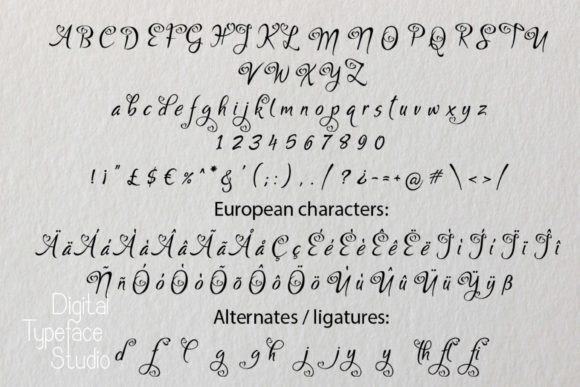 A B C D E F G H I J K L M N O P Q R S T U
V W X Y Z
a b c d e f g h i j k l m n o p q r s t u v w x y z
1 2 3 4 5 6 7 8 9 0
! ¡ " £ $ € % ^ * & ' ( ; : ) , . / ? ¿ - = + @ # \ < > /
European characters:
Ä ä Á á À à Â â Ã ã Å å Ç ç É é È è Ê ê Ë ë Í í Ì ì Ï ï Î î
Ñ ñ Ó ó Ò ò Õ õ Ô ô Ö ö Ú ú Ù ù Û û Ü ü Ÿ ÿ ß
Alternates / ligatures:
d f l g gh j jy y th fl fi
Digital
Typeface
Studio